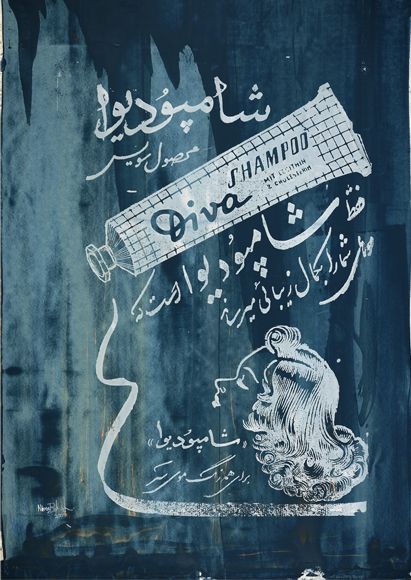 شامپو دیوا
محصول سویس
SHAMPOO
MIT LECITHIN
& CHOLESTERIN
Diva
فقط
شامپو دیوا است که
موی شما را بکمال زیبائی میرساند
«شامپو دیوا»
برای هر رنگ موی سر